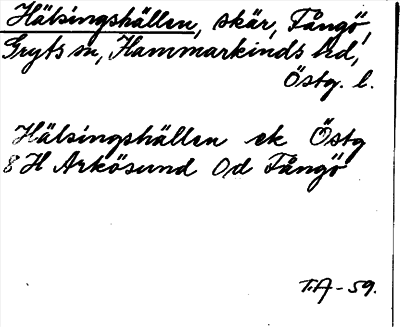 Hälsingshällen, skär, Fångö,
Gryts sn, Hammarkinds hd,
Östg. l.
Hälsingshällen ek Östg
8 H Arkösund 0d Fångö
T.A-59.